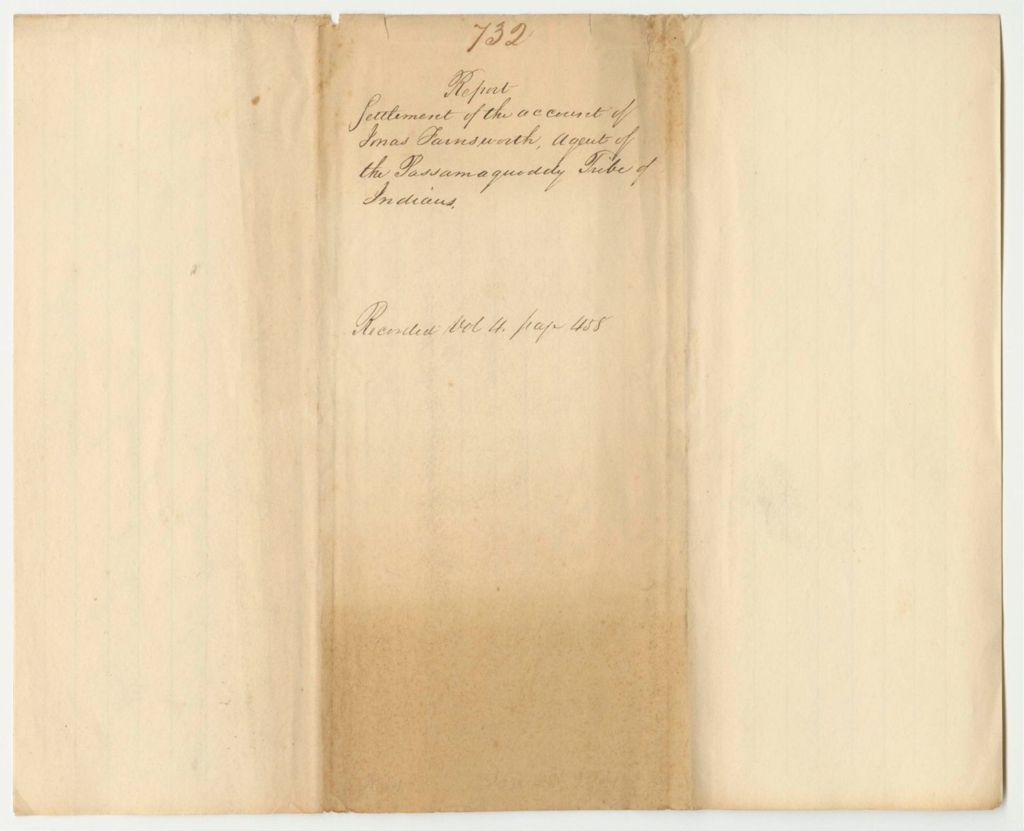 732
Report
Settlement of the account of
Jonas Farnsworth, Agent of
the Passamaquoddy Tribe of
Indians.
Recorded Vol 4. page 458